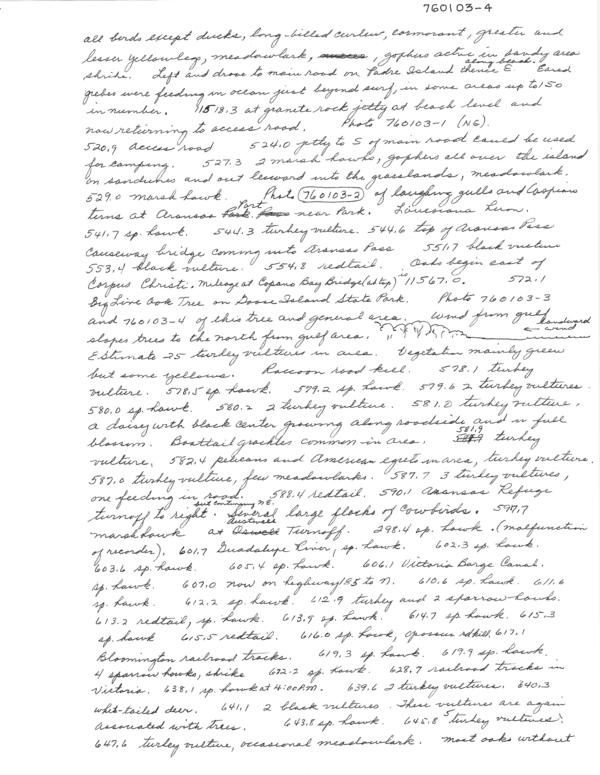 760103-4
all birds except ducks, long-billed curlew, cormorant, greater and
lesser yellowleg, meadowlark, , gophers active in sandy area
along beach.
shrike. Left and drove to main road on Padre Island thence E. Eared
grebes were feeding in ocean just beyond surf, in some areas up to 150
in number. 11518.3 at granite rock jetty at beach level and
now returning to access road. Photo 760103-1 (NG).
520.9 access road 524.0 ptly to S of main road could be used
for camping. 527.3 2 marsh hawks, gophers all over the island
on sandunes and out leeward into the grasslands, meadowlark.
529.0 marsh hawk. Photo 760103-2 of laughing gulls and Caspian
terns at Aransas Port near Park. Louisiana heron.
541.7 sp. hawk. 544.3 turkey vulture. 544.6 top of Aransas Pass
Causeway bridge coming into Aransas Pass 551.7 black vulture
553.4 black vulture. 554.8 redtail. Oaks begin east of
Corpus Christi. Mileage at Copano Bay Bridge (at top) is 11567.0. 572.1
Big Live Oak Tree on Goose Island State Park. Photo 760103-3
and 760103-4 of this tree and general area. Wind from gulf
slopes trees to the north from gulf area. landward
wind
Estimate 25 turkey vultures in area. Vegetation mainly green
but some yellows. Raccoon road kill. 578.1 turkey
vulture. 578.5 sp. hawk. 579.2 sp. hawk 579.6 2 turkey vultures.
580.0 sp. hawk. 580.2 2 turkey vulture. 581.0 turkey vulture,
a daisy with black center growing along roadside and in full
blossom. Boattail grackles common in area. 581.9 turkey
vulture, 582.4 pelicans and American egret in area, turkey vulture.
587.0 turkey vulture, few meadowlarks. 587.7 3 turkey vultures,
one feeding in road. 588.4 redtail. 590.1 Aransas Refuge
turnoff to right. but continuing N.E. Several large flocks of Cowbirds. 597.7
marsh hawk at Austwell Turnoff. 298.4 sp. hawk. (malfunction
of recorder). 601.7 Guadalupe River, sp. hawk. 602.3 sp. hawk.
603.6 sp. hawk. 605.4 sp. hawk. 606.1 Victoria Barge Canal.
sp. hawk. 607.0 now on highway 185 to N. 610.6 sp. hawk. 611.6
sp. hawk. 612.2 sp. hawk. 612.9 turkey and 2 sparrow hawks.
613.2 redtail, sp. hawk. 613.9 sp. hawk. 614.7 sp. hawk. 615.3
sp. hawk 615.5 redtail. 616.0 sp. hawk, opossum rd kill. 617.1
Bloomington railroad tracks. 619.3 sp. hawk. 619.9 sp. hawk.
4 sparrow hawks, shrike 622.2 sp. hawk. 628.7 railroad tracks in
Victoria. 638.1 sp. hawk at 4:00 P.M. 639.6 2 turkey vultures. 640.3
white-tailed deer. 641.1 2 black vultures. These vultures are again
associated with trees. 643.8 sp. hawk. 645.8 5 turkey vultures.
647.6 turkey vulture, occasional meadowlark. most oaks without